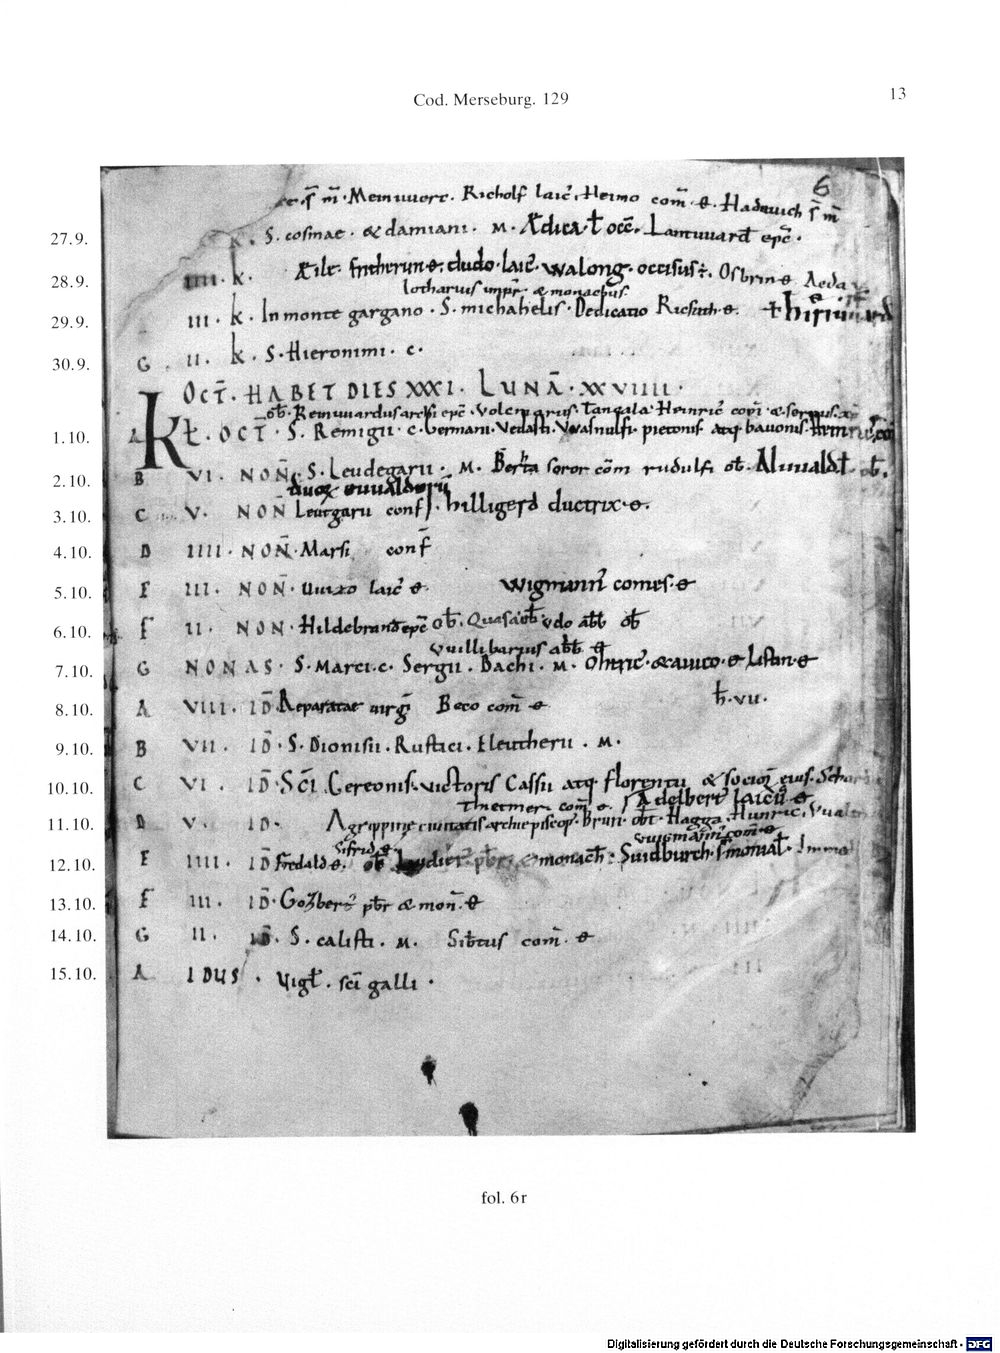 Cod. Merseburg. 129
13
6
s̄ m̄ · Meinuuerc · Richolf laic̄ · Heimo com̄ · ə · Hadauuich s̄ m̄
27.9. k · S. cosmae · & damiani · M · Ædica · ł occ̄ · Lantuuard epc̄ ·
28.9. IIII · k · Æile · fritherun ə · dudo · laic̄ · walong · occisus ÷ · Osbrin ə Aeda
lotharius impr̄ · & monachus
29.9. III · k · In monte gargano · S. michahelis · Dedicatio Ricsuith · ə ·
30.9. G · II · k · S. Hieronimi · c ·
OCT̄ · HABET DIES XXXI · LUNĀ · XXVIIII ·
ob̄ · Remuuardus archi epc̄ · Heinric̄
1.10. A Kł · OCT · S. Remigii · c · Germani · Vedasti · bauonis
2.10. B VI · NON̄ · S. Leudegarii · M · Berta soror com̄ rudulfi ob̄ · Aluualdł ob̄ ·
duoꝝ euualdorū
3.10. C V · NON̄ Leutgarii conf · hilligerd ductrix · ə ·
4.10. D IIII · NON̄ · Marsi conf̄
5.10. E III · NON̄ · Uuizo laic̄ ə wigmann̄ comes · ə
6.10. F II · NON · Hildebrand epc̄ ob̄ · ob̄ udo abb̄ ob̄
vuillibarius abb̄ ə
7.10. G NONAS · S. Marci · c · Sergii · Bachi · M ·
8.10. A VIII · ID̄ Reparatae uirg̅ Beco com̄ ə h̄ · VII ·
9.10. B VII · ID̄ · S. Dionisii · Rustici · Eleutherii · M ·
10.10. C VI · ID̄ · Sc̄i Gereonis · uictoris Cassii atq· florentii & socioꝝ eius ·
Thietmer com̄ · ə · Adelbert̄ laic̄ ə
11.10. D V · ID · Agrippinę ciuitatis archiepiscop̄ · Brun · ob̄t · Hagga · Hunric̄ ·
Sifrid · ə uuigmann̄ com̄ ə
12.10. E IIII · ID̄ Fredald ə · ob̄ pb̄r & monach̄ · Suidburch · s̄imonial̄ · Imma
13.10. F III · ID̄ · Gozbert̄ pb̄r & mon̄ · ə
14.10. G II · ID̄ · S. calisti · M · Sib̄tus com̄ · ə
15.10. A IDUS · Uigł · sc̄i galli ·
fol. 6r
Digitalisierung gefördert durch die Deutsche Forschungsgemeinschaft · DFG